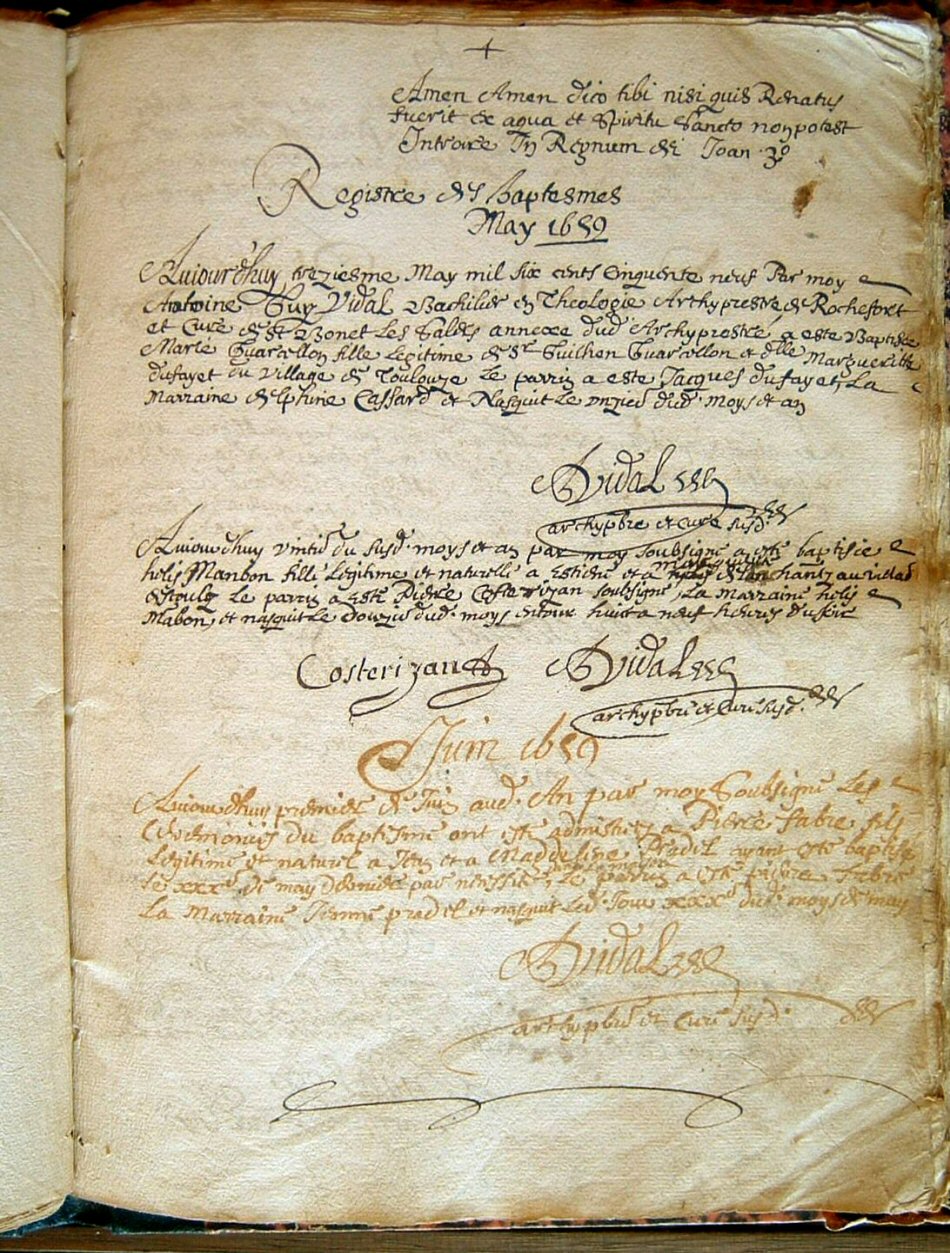 Amen Amen dico tibi nisi quis Renatus
fuerit ex aqua et Spiritu Sancto non potest
Introire In Regnum dei Joan 3º
Registre des Baptesmes
May 1659
Auiourdhuy treziesme May mil six cents Cinquente neuf Par moy
Antoine Guy Vidal Bachilier en Theologie Archyprestre de Rochefort
et Curé de St Bonet Les annexe dud. Archyprestré, a este Baptisée
Marie fille Legitime de Sr Guilhen et dlle Margueritte
dufayet du Village de Toulouze Le parrin a esté Jacques dufayet, La
Marraine delphine Cassard et Nasquit Le unzie dud. moys et an
AVidal
archypbre et Curé susd.
Auiourdhuy du susd. moys et an par moy soubsigné a esté baptisée
helis Manbon fille Legitime et naturelle a Estiene et a
Le parrin a esté Pierre Costerizan soubsigné, La Marraine helis
Mabon, et nasquit Le dud. moys entour huict a neuf heures du soir
Costerizan AVidal
archypbre et Curé susd.
Juin 1659
Auiourdhuy premier de Juin aud. An par moy Soubsigné Les
Ceremonies du baptisme ont esté admistrées a Pierre fabre fils
Legitime et naturel a Jean et a Magdeleine Pradel ayant esté baptisé
le xxxe de may par necessité, Le parrin a esté pierre fabre
La Marraine Jeanne pradel et nasquit Led. Jour xxxe dud. moys de may
AVidal
archypbre et Curé susd.